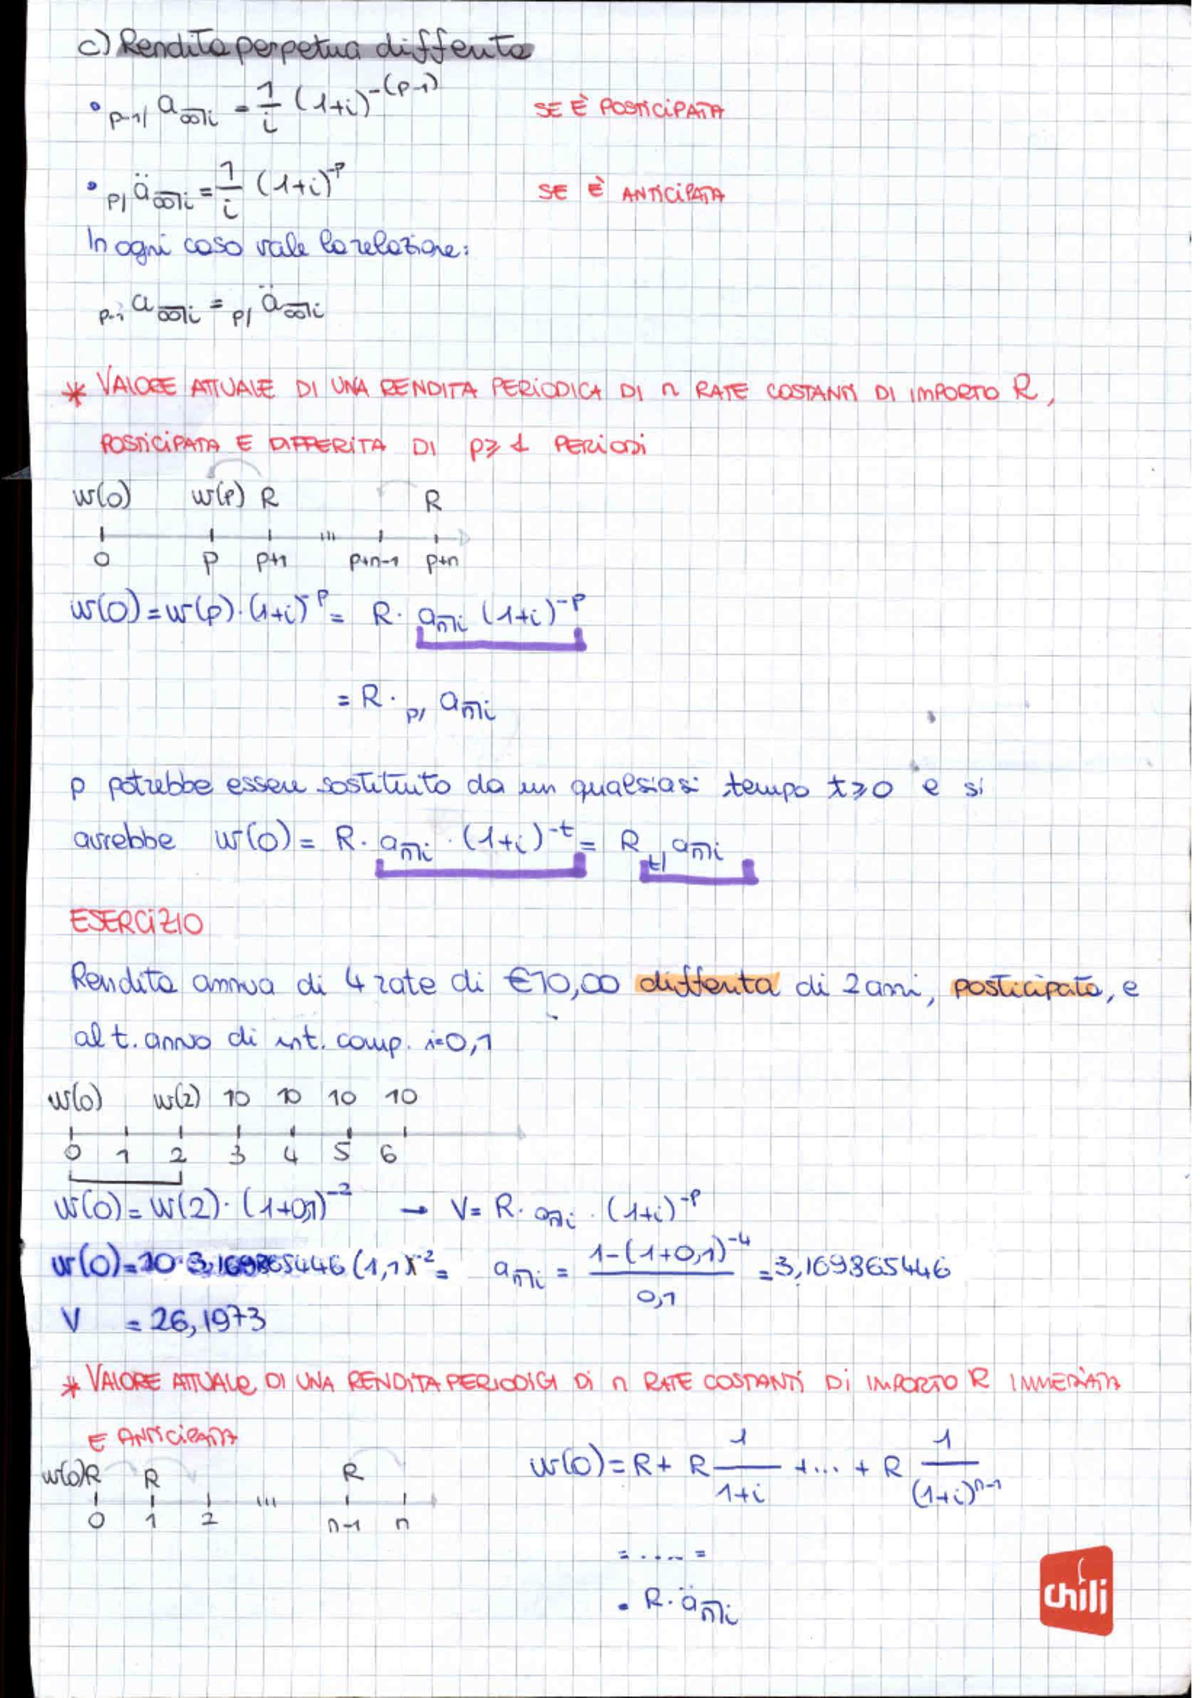 c) Rendita perpetua differita
• p-1/ a∞̅|i = 1/i (1+i)^-(p-1) SE È POSTICIPATA
• p/ ä∞̅|i = 1/i (1+i)^-p SE È ANTICIPATA
In ogni caso vale la relazione:
p-1 a∞̅|i = p/ ä∞̅|i
* VALORE ATTUALE DI UNA RENDITA PERIODICA DI n RATE COSTANTI DI IMPORTO R,
POSTICIPATA E DIFFERITA DI p≥1 PERIODI
w(0) w(p) R R
0 p p+1 ... p+n-1 p+n
w(0) = w(p)·(1+i)^-p = R· an̅|i (1+i)^-p
= R· p/ an̅|i
p potrebbe essere sostituito da un qualsiasi tempo t≥0 e si
avrebbe w(0) = R· an̅|i ·(1+i)^-t = R t/ an̅|i
ESERCIZIO
Rendita annua di 4 rate di €10,00 differita di 2 anni, posticipata, e
al t. annuo di int. comp. i=0,1
w(0) w(2) 10 10 10 10
0 1 2 3 4 5 6
w(0) = w(2)·(1+0,1)^-2 → V = R· an̅|i ·(1+i)^-p
w(0) = 10·3,169865446 (1,1)^-2 = an̅|i = 1-(1+0,1)^-4 / 0,1 = 3,169865446
V = 26,1973
* VALORE ATTUALE DI UNA RENDITA PERIODICA DI n RATE COSTANTI DI IMPORTO R IMMEDIATA
E ANTICIPATA
w(0)R R R
0 1 2 ... n-1 n
w(0) = R + R 1/(1+i) + ... + R 1/(1+i)^n-1
= ..... =
• R· än̅|i
chili